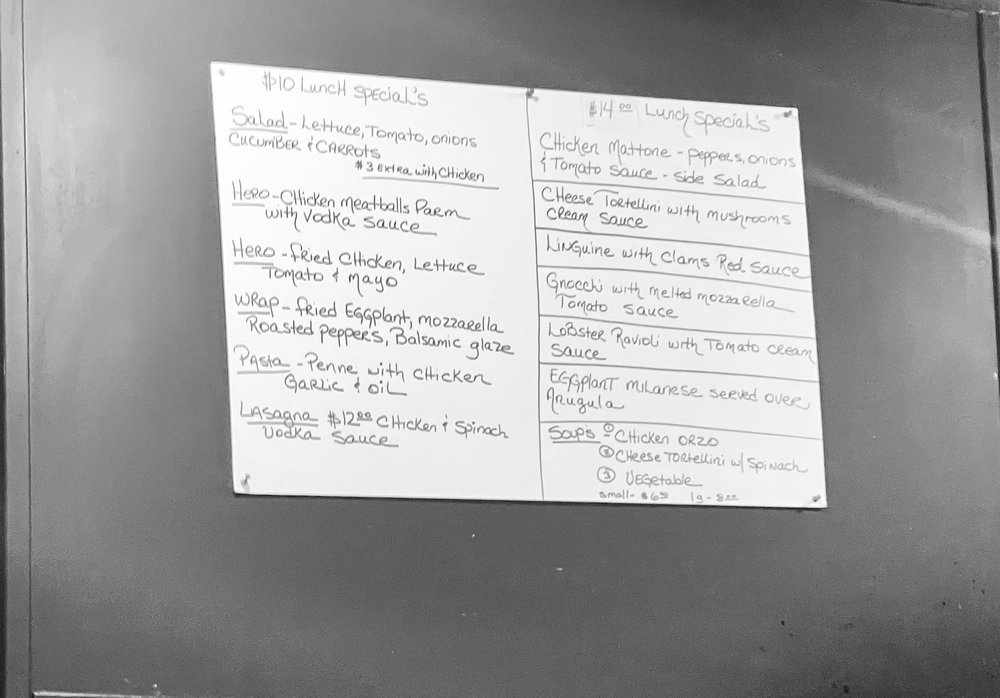 $10 Lunch Special's
Salad - Lettuce, Tomato, onions
Cucumber & Carrots
$3 Extra with Chicken
Hero - Chicken Meatballs Parm
with Vodka Sauce
Hero - Fried Chicken, Lettuce
Tomato & Mayo
Wrap - Fried Eggplant, mozzarella
Roasted peppers, Balsamic glaze
Pasta - Penne with Chicken
Garlic & oil
Lasagna $12.00 Chicken & Spinach
Vodka Sauce
$14.00 Lunch Special's
Chicken Mattone - peppers, onions
& Tomato Sauce - Side Salad
Cheese Tortellini with mushrooms
Cream Sauce
Linguine with Clams Red Sauce
Gnocchi with melted mozzarella
Tomato Sauce
Lobster Ravioli with Tomato cream
Sauce
Eggplant Milanese served over
Arugula
Soup's - ① Chicken Orzo
② Cheese Tortellini w/ Spinach
③ Vegetable
Small - $6.50 lg - 8.00